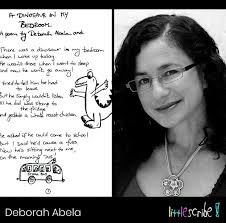 A DINOSAUR IN MY
BEDROOM
A poem by Deborah Abela and
There was a dinosaur in my bedroom
when I woke up today.
and now he won't go away!
I tried to tell him he had
to leave
But he simply couldn't listen
till he did was stomp to
the fridge
and gobble a whole roast chicken.
He asked if he could come to school
but I said he'd cause a fuss
Now he's sitting next to me,
on the morning bus
Deborah Abela
littlescribe